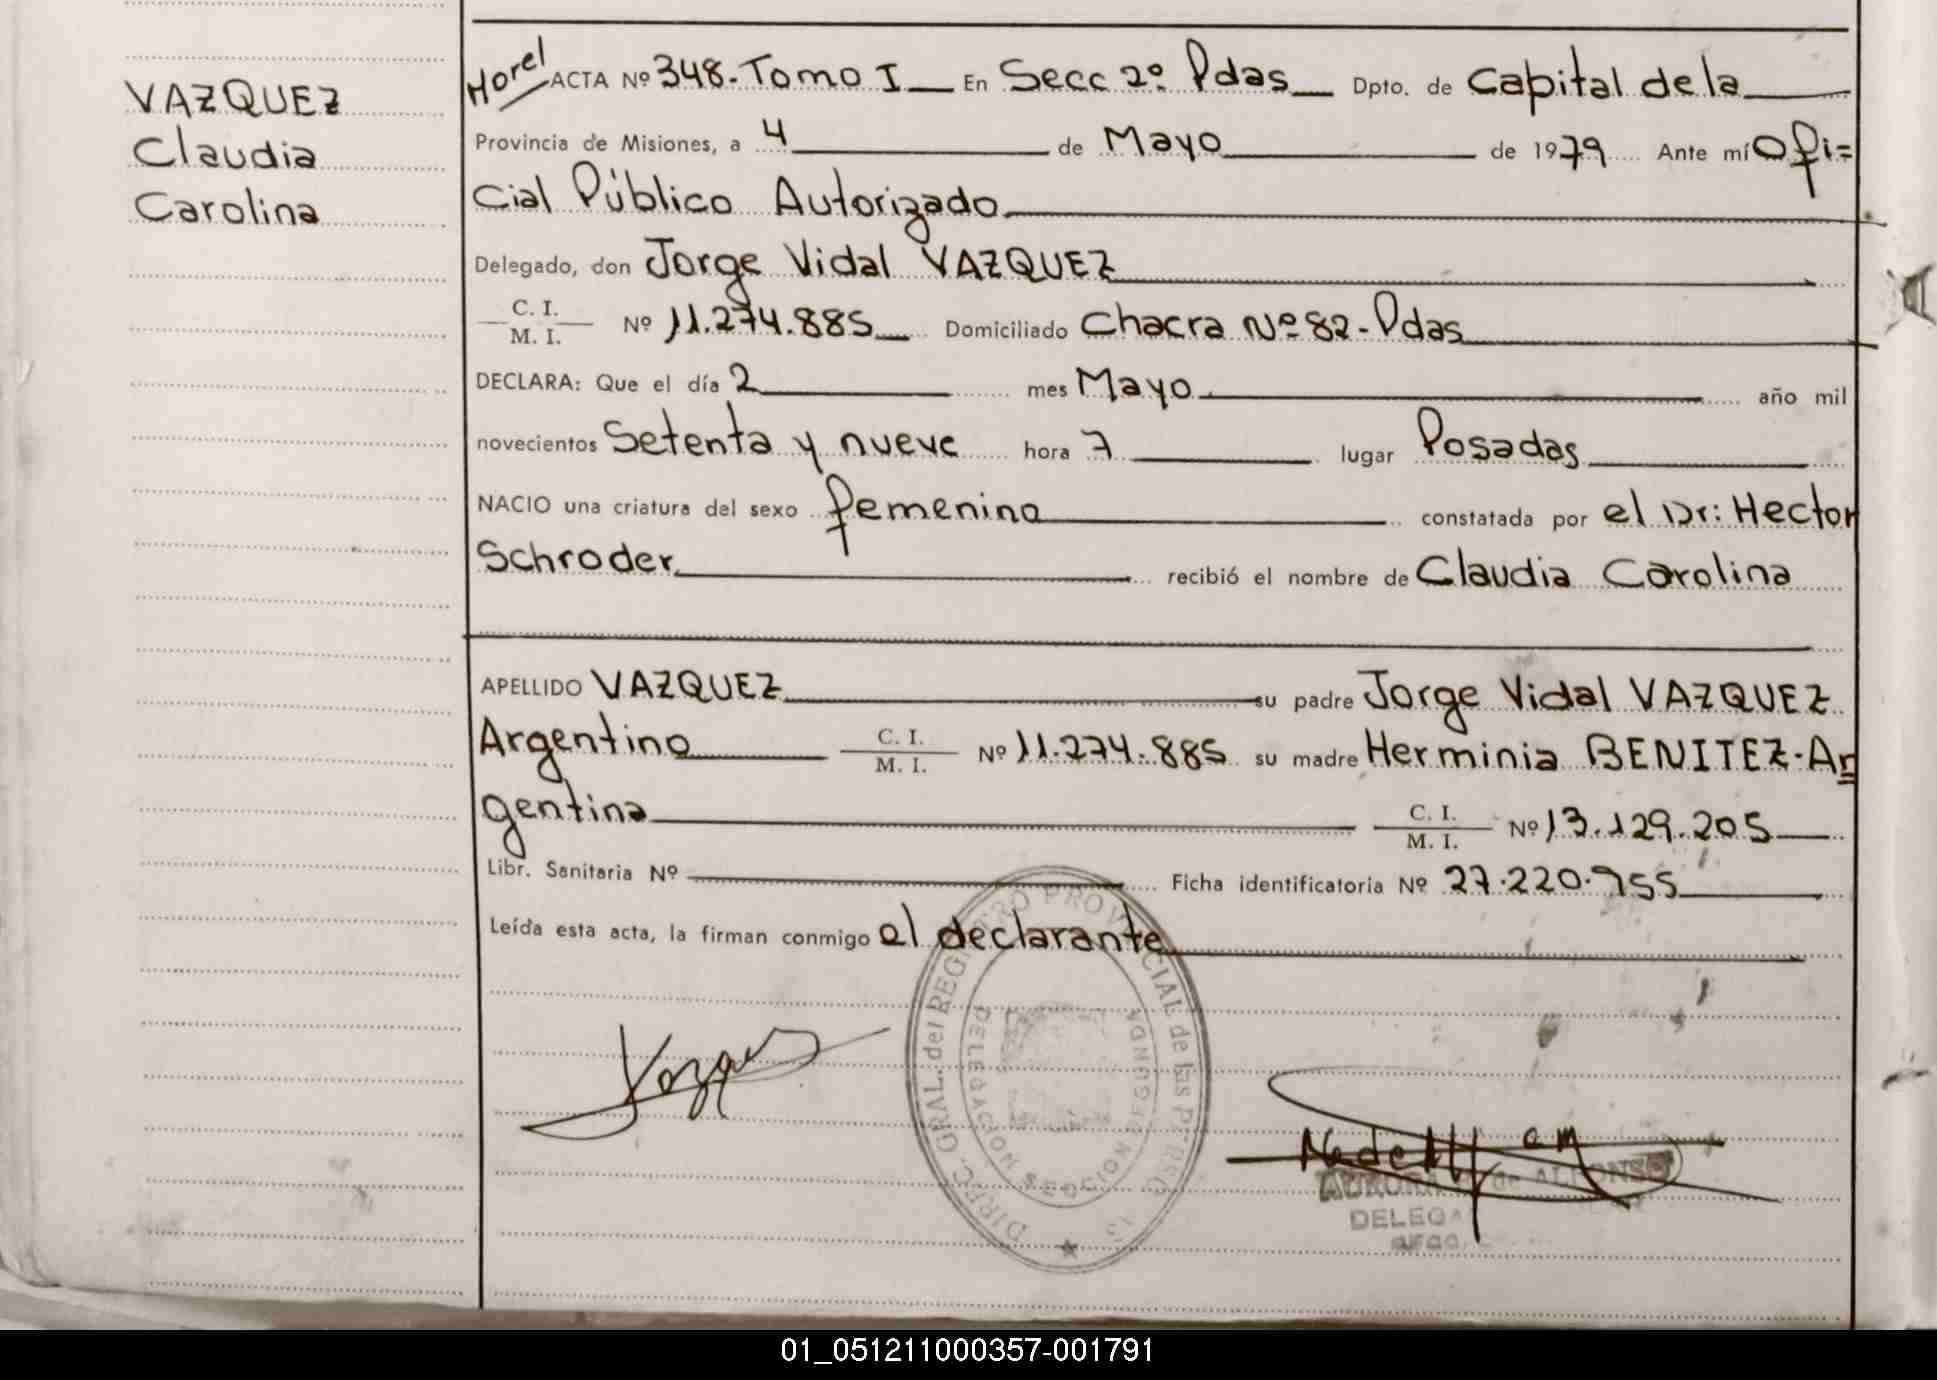 VAZQUEZ
Claudia
Carolina
Horel ACTA Nº 348-Tomo I En Secc 2º Pdas Dpto. de Capital de la
Provincia de Misiones, a 4 de Mayo de 1979 Ante mí Ofi=
cial Público Autorizado
Delegado, don Jorge Vidal VAZQUEZ
C. I.
M. I. Nº 11.274.885 Domiciliado Chacra Nº 82-Pdas
DECLARA: Que el día 2 mes Mayo año mil
novecientos Setenta y nueve hora 7 lugar Posadas
NACIO una criatura del sexo femenino constatada por el Dr: Hector
Schroder recibió el nombre de Claudia Carolina
APELLIDO VAZQUEZ su padre Jorge Vidal VAZQUEZ
Argentino C. I.
M. I. Nº 11.274.885 su madre Herminia BENITEZ-Ar
gentina C. I.
M. I. Nº 13.129.205
Libr. Sanitaria Nº Ficha identificatoria Nº 27.220.955
Leída esta acta, la firman conmigo el declarante
DIREC. GRAL. del REGISTRO PROVINCIAL de las
DELEGACION SECCION SEGUNDA
de ALFONSO
01_051211000357-001791